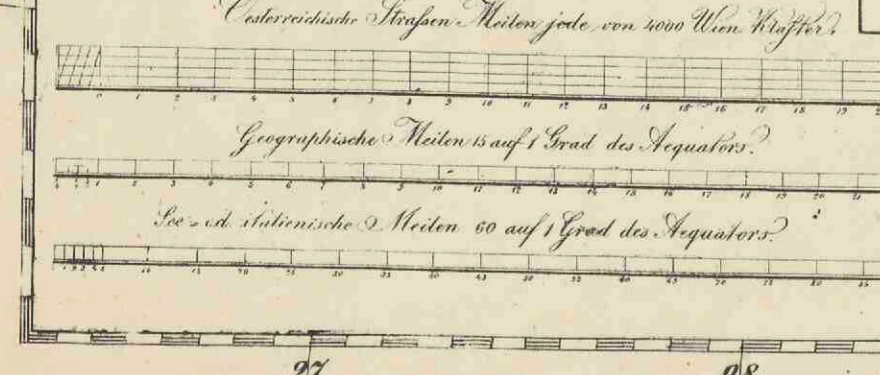 Oesterreichische Strassen Meilen jede von 4000 Wien Klafter.
0 1 2 3 4 5 6 7 8 9 10 11 12 13 14 15 16 17 18 19
Geographische Meilen 15 auf 1 Grad des Aequators.
1 2 3 4 5 6 7 8 9 10 11 12 13 14 15 16 17 18 19 20 21
See - od. italienische Meilen 60 auf 1 Grad des Aequators.
10 15 20 25 30 35 40 45 50 55 60 65 70 75 80 85
27 28